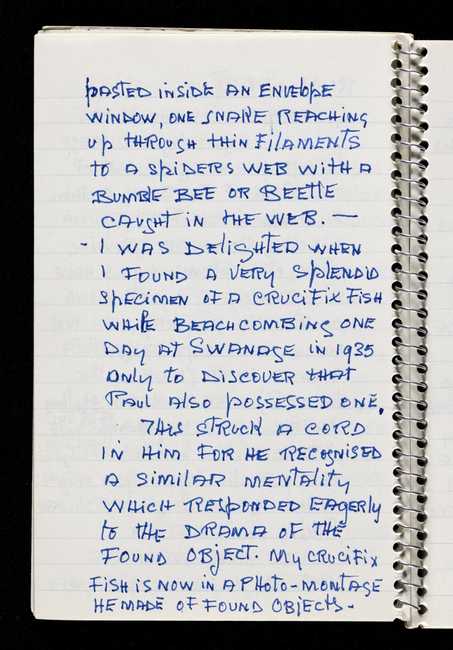 pasted inside an envelope
window, one snake reaching
up through thin filaments
to a spiders web with a
bumble bee or beetle
caught in the web. —
- I was delighted when
I found a very splendid
specimen of a crucifix fish
while beachcombing one
day at Swanage in 1935
only to discover that
Paul also possessed one.
This struck a cord
in him for he recognised
a similar mentality
which responded eagerly
to the drama of the
found object. My crucifix
fish is now in a photo-montage
he made of found objects -